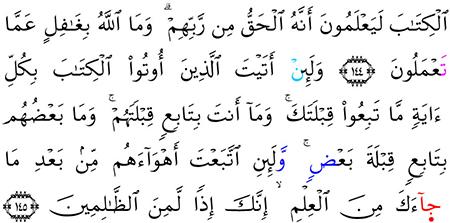 ٱلۡكِتَٰبَ لَيَعۡلَمُونَ أَنَّهُ ٱلۡحَقُّ مِن رَّبِّهِمۡۗ وَمَا ٱللَّهُ بِغَٰفِلٍ عَمَّا
تَعۡمَلُونَ ۝١٤٤ وَلَئِنۡ أَتَيۡتَ ٱلَّذِينَ أُوتُواْ ٱلۡكِتَٰبَ بِكُلِّ
ءَايَةٖ مَّا تَبِعُواْ قِبۡلَتَكَۚ وَمَآ أَنتَ بِتَابِعٖ قِبۡلَتَهُمۡۚ وَمَا بَعۡضُهُم
بِتَابِعٖ قِبۡلَةَ بَعۡضٖۚ وَلَئِنِ ٱتَّبَعۡتَ أَهۡوَآءَهُم مِّنۢ بَعۡدِ مَا
جَآءَكَ مِنَ ٱلۡعِلۡمِ إِنَّكَ إِذٗا لَّمِنَ ٱلظَّٰلِمِينَ ۝١٤٥